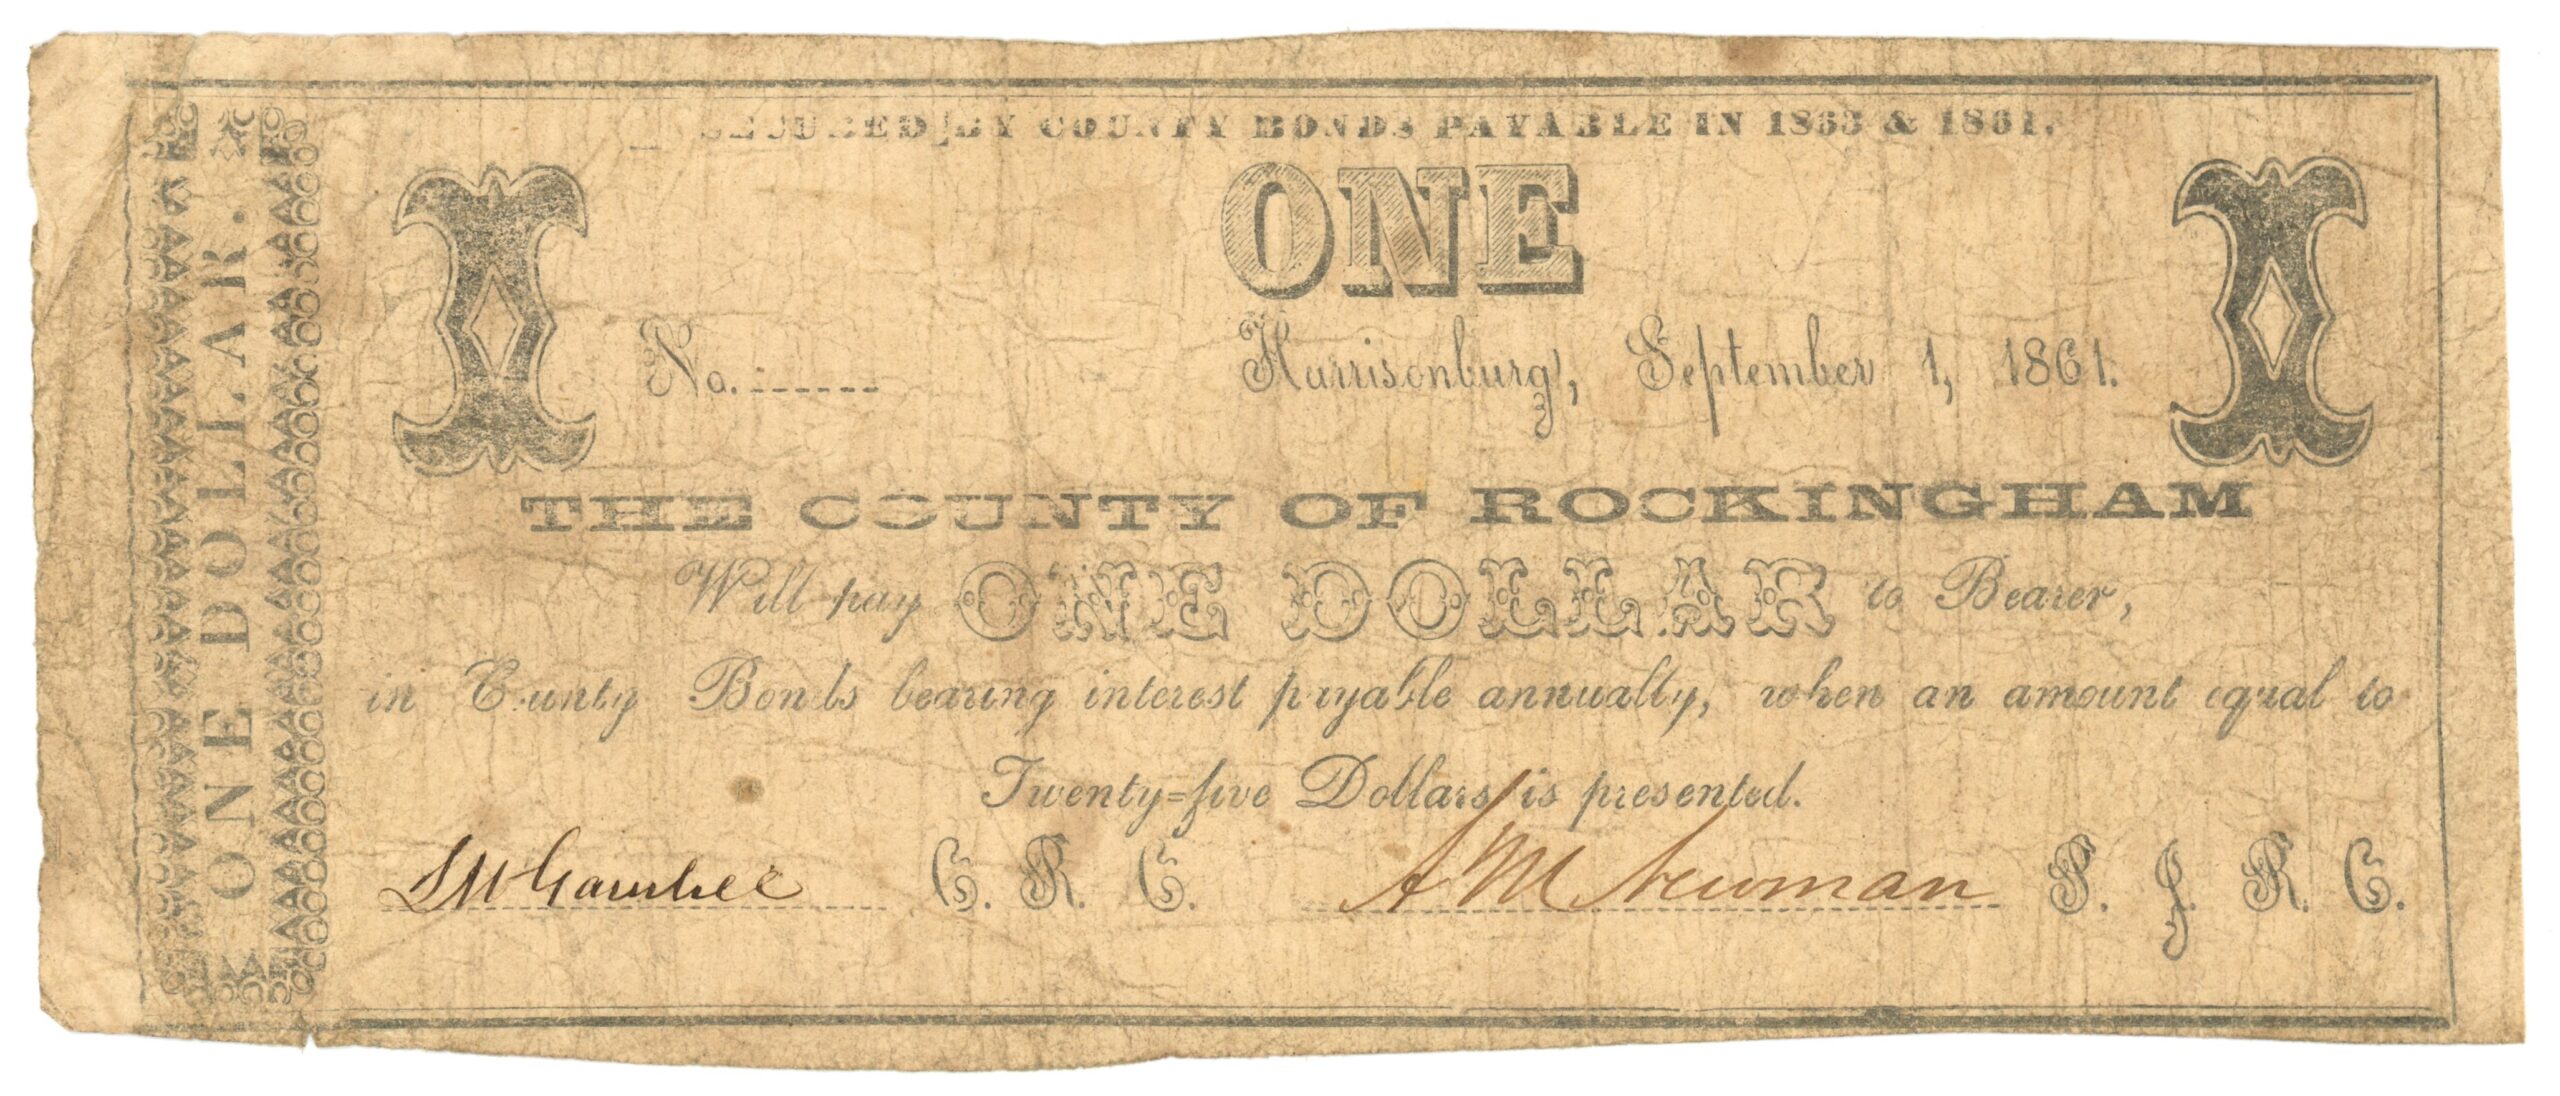 SECURED BY COUNTY BONDS PAYABLE IN 1863 & 1864.
ONE
I
I
No.
Harrisonburg, September 1, 1861.
THE COUNTY OF ROCKINGHAM
Will pay ONE DOLLAR to Bearer,
in County Bonds bearing interest payable annually, when an amount equal to
Twenty-five Dollars is presented.
C. R. C.
A M Newman P. J. R. C.
ONE DOLLAR.